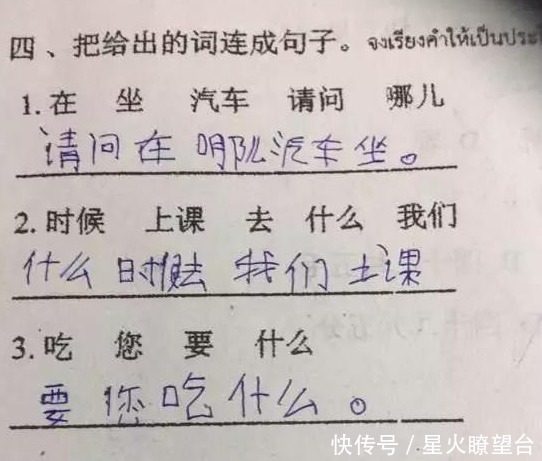 四、把给出的词连成句子。จงเรียงคำให้เป็นประโ
1.在 坐 汽车 请问 哪儿
请问在哪儿汽车坐。
2.时候 上课 去 什么 我们
什么时候去 我们 上课
3.吃 您 要 什么
要 您吃什么。
快传号/星火瞭望台